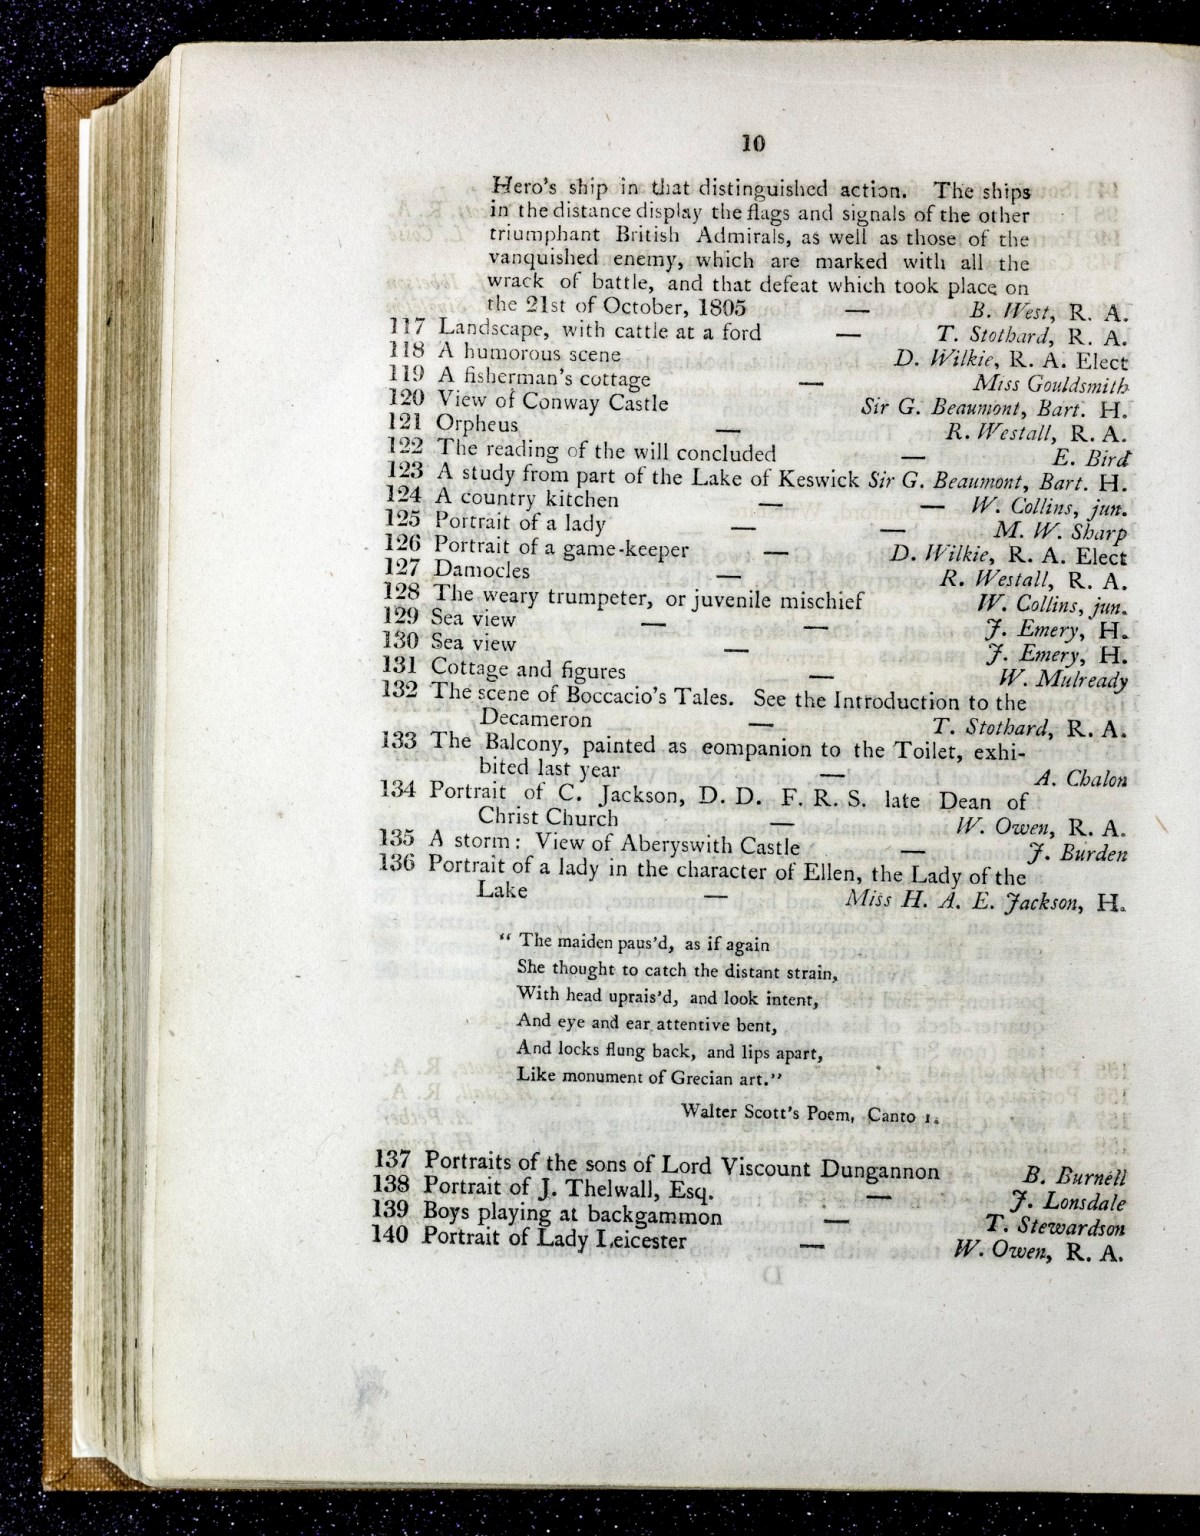 10
Hero's ship in that distinguished action. The ships
in the distance display the flags and signals of the other
triumphant British Admirals, as well as those of the
vanquished enemy, which are marked with all the
wrack of battle, and that defeat which took place on
the 21st of October, 1805 — B. West, R. A.
117 Landscape, with cattle at a ford — T. Stothard, R. A.
118 A humorous scene D. Wilkie, R. A. Elect
119 A fisherman's cottage — Miss Gouldsmith
120 View of Conway Castle Sir G. Beaumont, Bart. H.
121 Orpheus — R. Westall, R. A.
122 The reading of the will concluded — E. Bird
123 A study from part of the Lake of Keswick Sir G. Beaumont, Bart. H.
124 A country kitchen — — W. Collins, jun.
125 Portrait of a lady — — M. W. Sharp
126 Portrait of a game-keeper — D. Wilkie, R. A. Elect
127 Damocles — R. Westall, R. A.
128 The weary trumpeter, or juvenile mischief W. Collins, jun.
129 Sea view — — J. Emery, H.
130 Sea view — J. Emery, H.
131 Cottage and figures — W. Mulready
132 The scene of Boccacio's Tales. See the Introduction to the
Decameron — T. Stothard, R. A.
133 The Balcony, painted as eompanion to the Toilet, exhi-
bited last year — A. Chalon
134 Portrait of C. Jackson, D. D. F. R. S. late Dean of
Christ Church — W. Owen, R. A.
135 A storm: View of Aberyswith Castle — J. Burden
136 Portrait of a lady in the character of Ellen, the Lady of the
Lake — Miss H. A. E. Jackson, H.
“ The maiden paus'd, as if again
She thought to catch the distant strain,
With head uprais'd, and look intent,
And eye and ear attentive bent,
And locks flung back, and lips apart,
Like monument of Grecian art.”
Walter Scott's Poem, Canto 1.
137 Portraits of the sons of Lord Viscount Dungannon B. Burnell
138 Portrait of J. Thelwall, Esq. — J. Lonsdale
139 Boys playing at backgammon — T. Stewardson
140 Portrait of Lady Leicester — W. Owen, R. A.